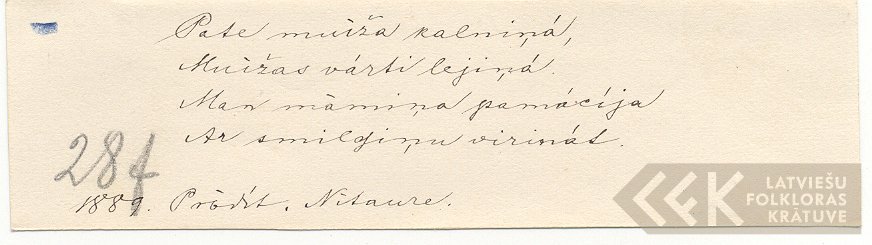 Pate muiža kalniņá,
Muižas várti lejiņá.
Man māmiņa pamácíja
Ar smildziņu virinát.
284
1889. Prōdít. Nitaure.
LATVIEŠU
FOLKLORAS
KRĀTUVE